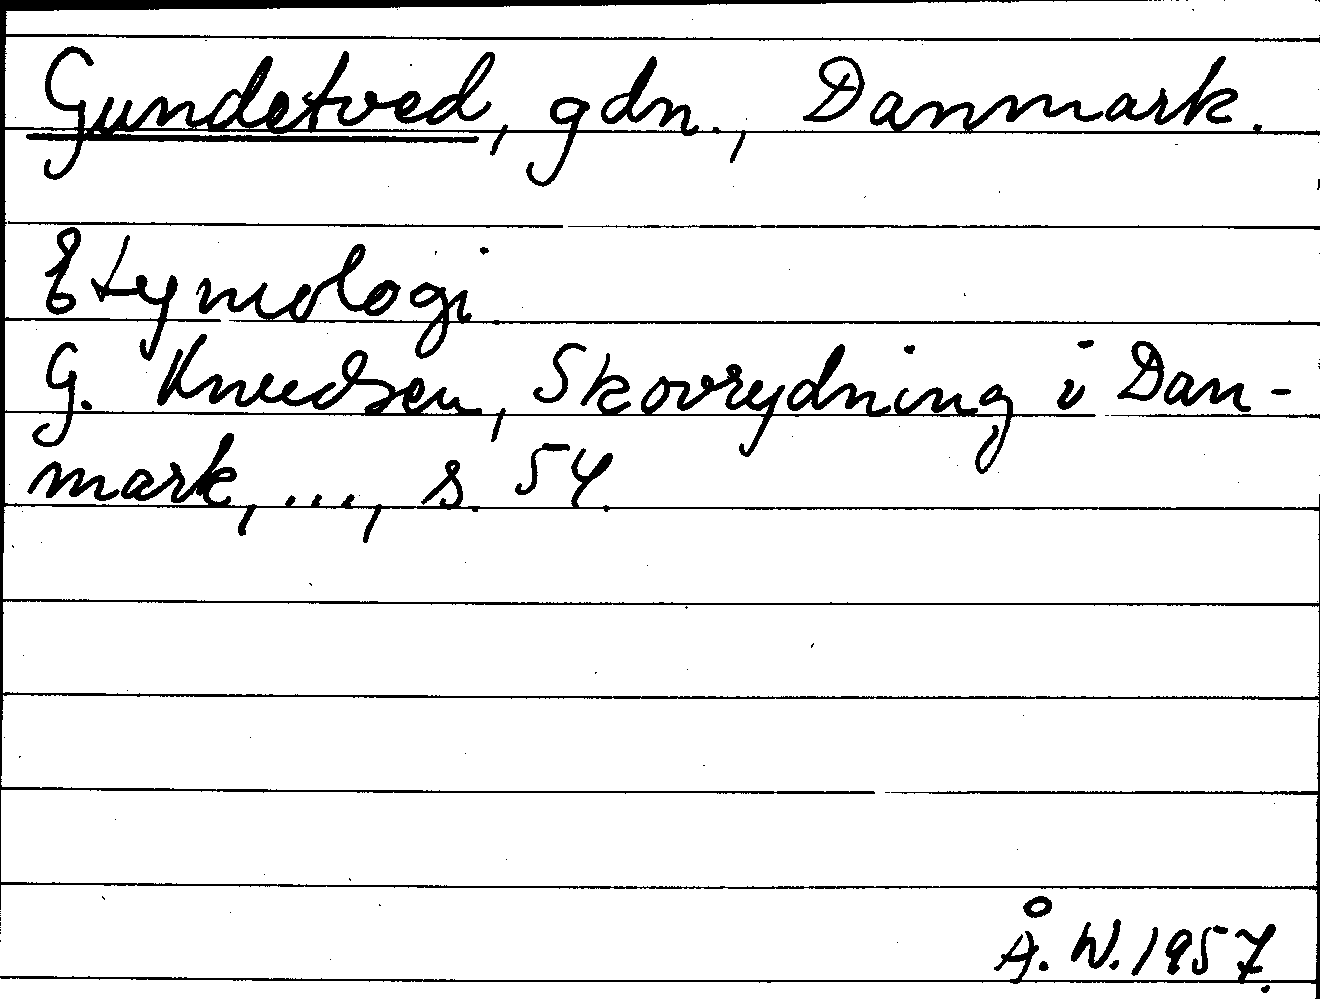 Gundetved, gdn., Danmark.
Etymologi
G. Knudsen, Skovrydning i Dan-
mark, ..., s. 54.
Å. W. 1957.